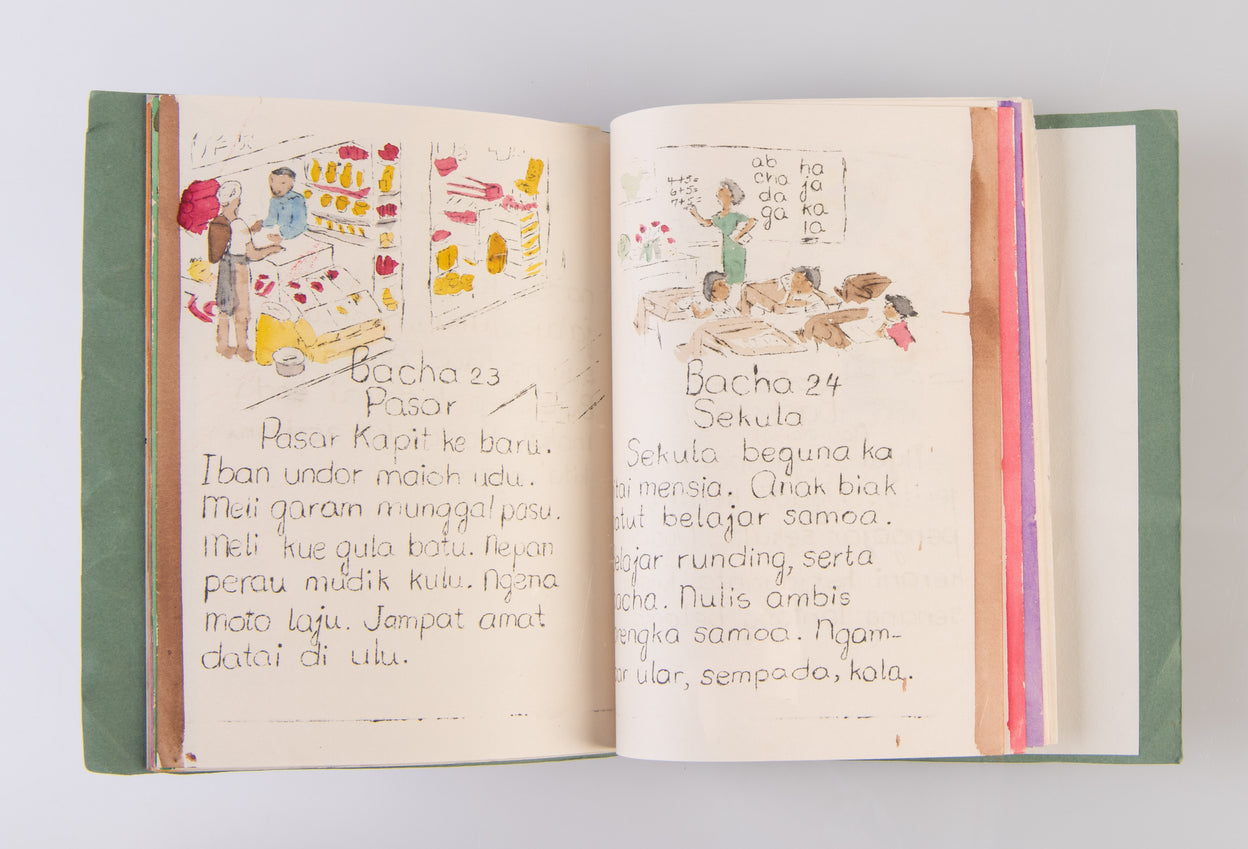 Bacha 23
Pasar
Pasar Kapit ke baru.
Iban undor maioh udu.
Meli garam munggal pasu.
Meli kue gula batu. Nepan
perau mudik kulu. Ngena
moto laju. Jampat amat
datai di ulu.
4+5=
6+5=
7+5=
ab
cha
da
ga
ha
ja
ka
la
Bacha 24
Sekula
Sekula beguna ka
tai mensia. Anak biak
atut belajar samoa.
elajar runding, serta
acha. Nulis ambis
rengka samoa. Ngam-
ar ular, sempada, kala.